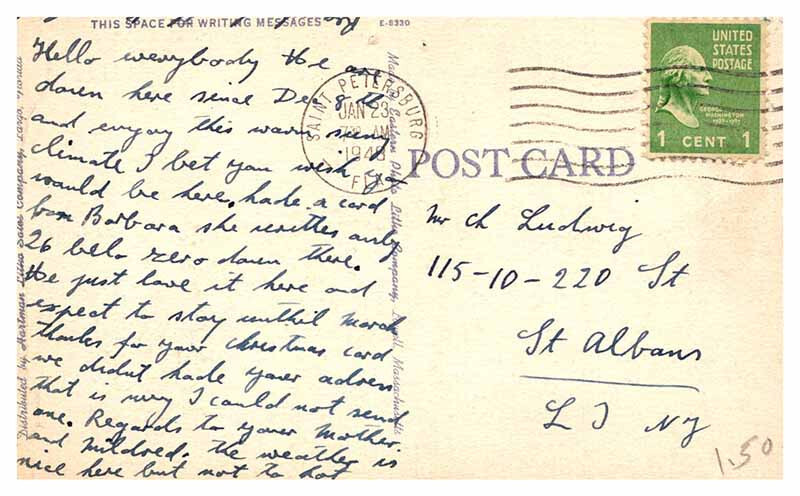 THIS SPACE FOR WRITING MESSAGES
E-8330
Hello everybody We are
down here since Dec 8 th
and enyoy this warm suny
climate I bet you wish you
would be here. hade a card
from Barbara she writtes only
26 belo zero down there.
We just love it here and
expect to stay unthil March
thanks for your christmas card
we didnt hade your adress
that is way I could not send
one. Regards to your Mother
and Mildred. the weather is
nice here but not to hot
Distributed by Hartman Litho Sales Company, Largo, Florida
Eastern Photo Litho Company, Massachusetts
SAINT PETERSBURG
JAN 23
AM
FLA
POST CARD
UNITED
STATES
POSTAGE
GEORGE
WASHINGTON
1 CENT 1
Mr Ch Ludwig
115-10-220 St
St Albans
L I NY
1.50